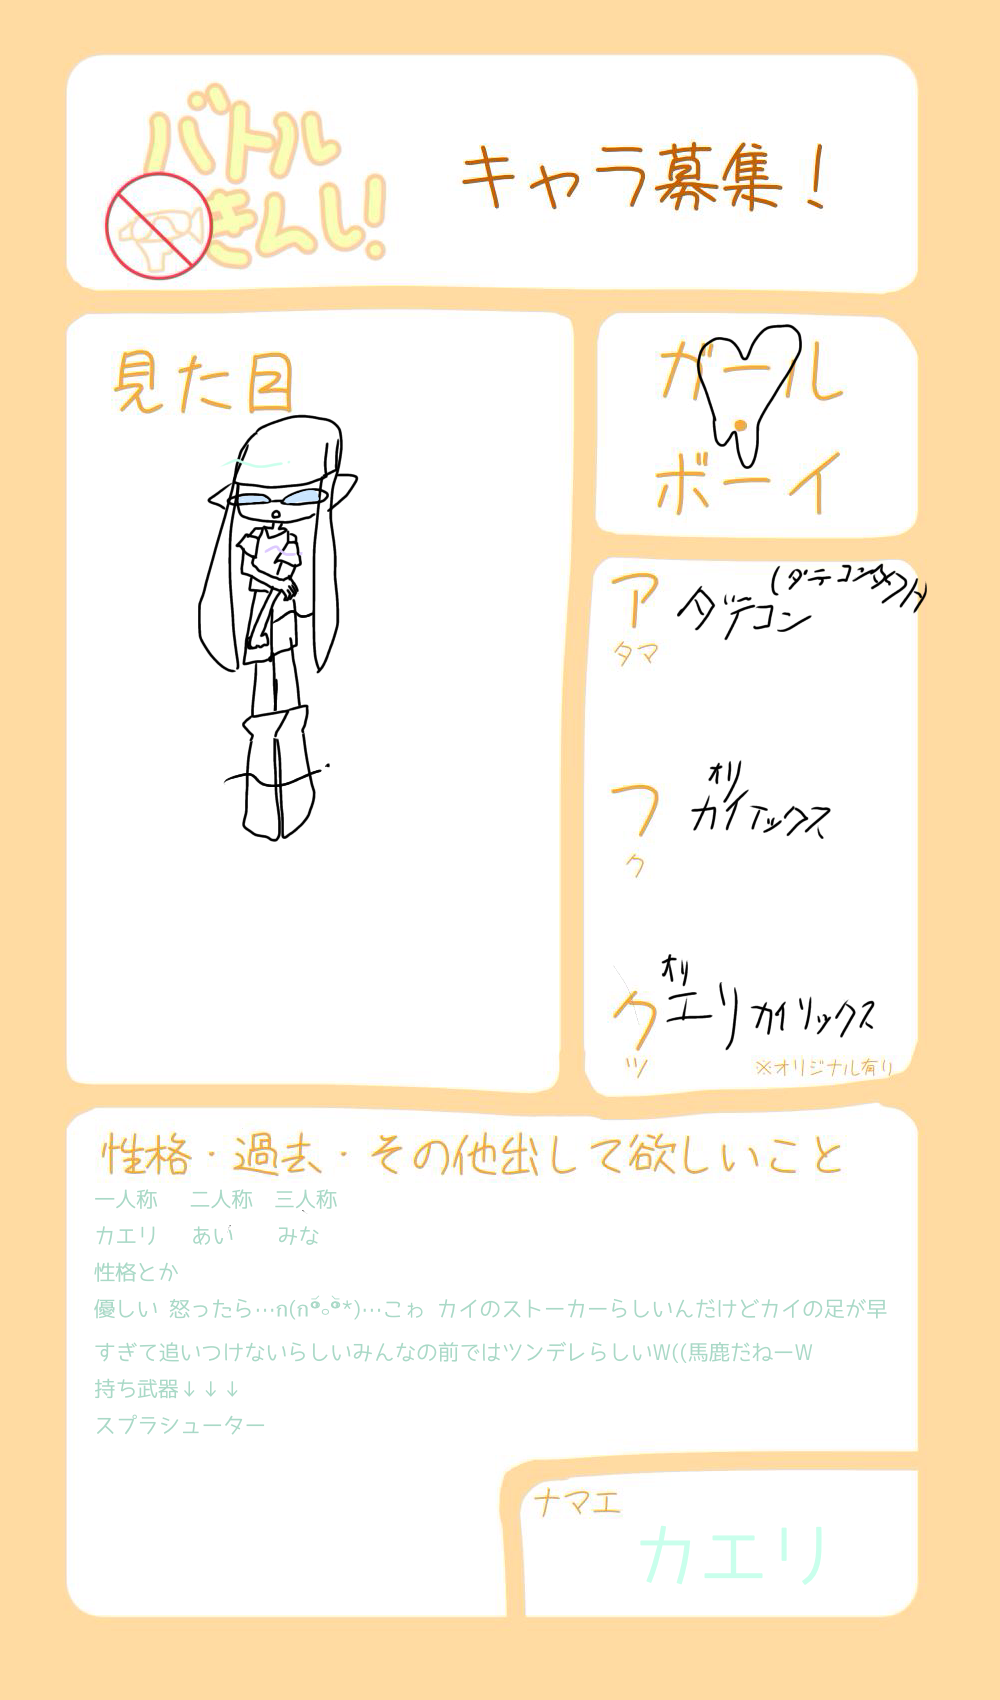 バトル
きんし!
キャラ募集!
見た目
ガール
ボーイ
ア
タマ
ダテコン
(ダテコンタクト)
フ
ク
オリ
カイテックス
ク
ツ
オリ
エリカイリックス
※オリジナル有り
性格・過去・その他出して欲しいこと
一人称 二人称 三人称
カエリ あい みな
性格とか
優しい 怒ったら…ก(ก ॑꒳ ॑*)…こゎ カイのストーカーらしいんだけどカイの足が早
すぎて追いつけないらしいみんなの前ではツンデレらしいW((馬鹿だねーW
持ち武器↓↓↓
スプラシューター
ナマエ
カエリ